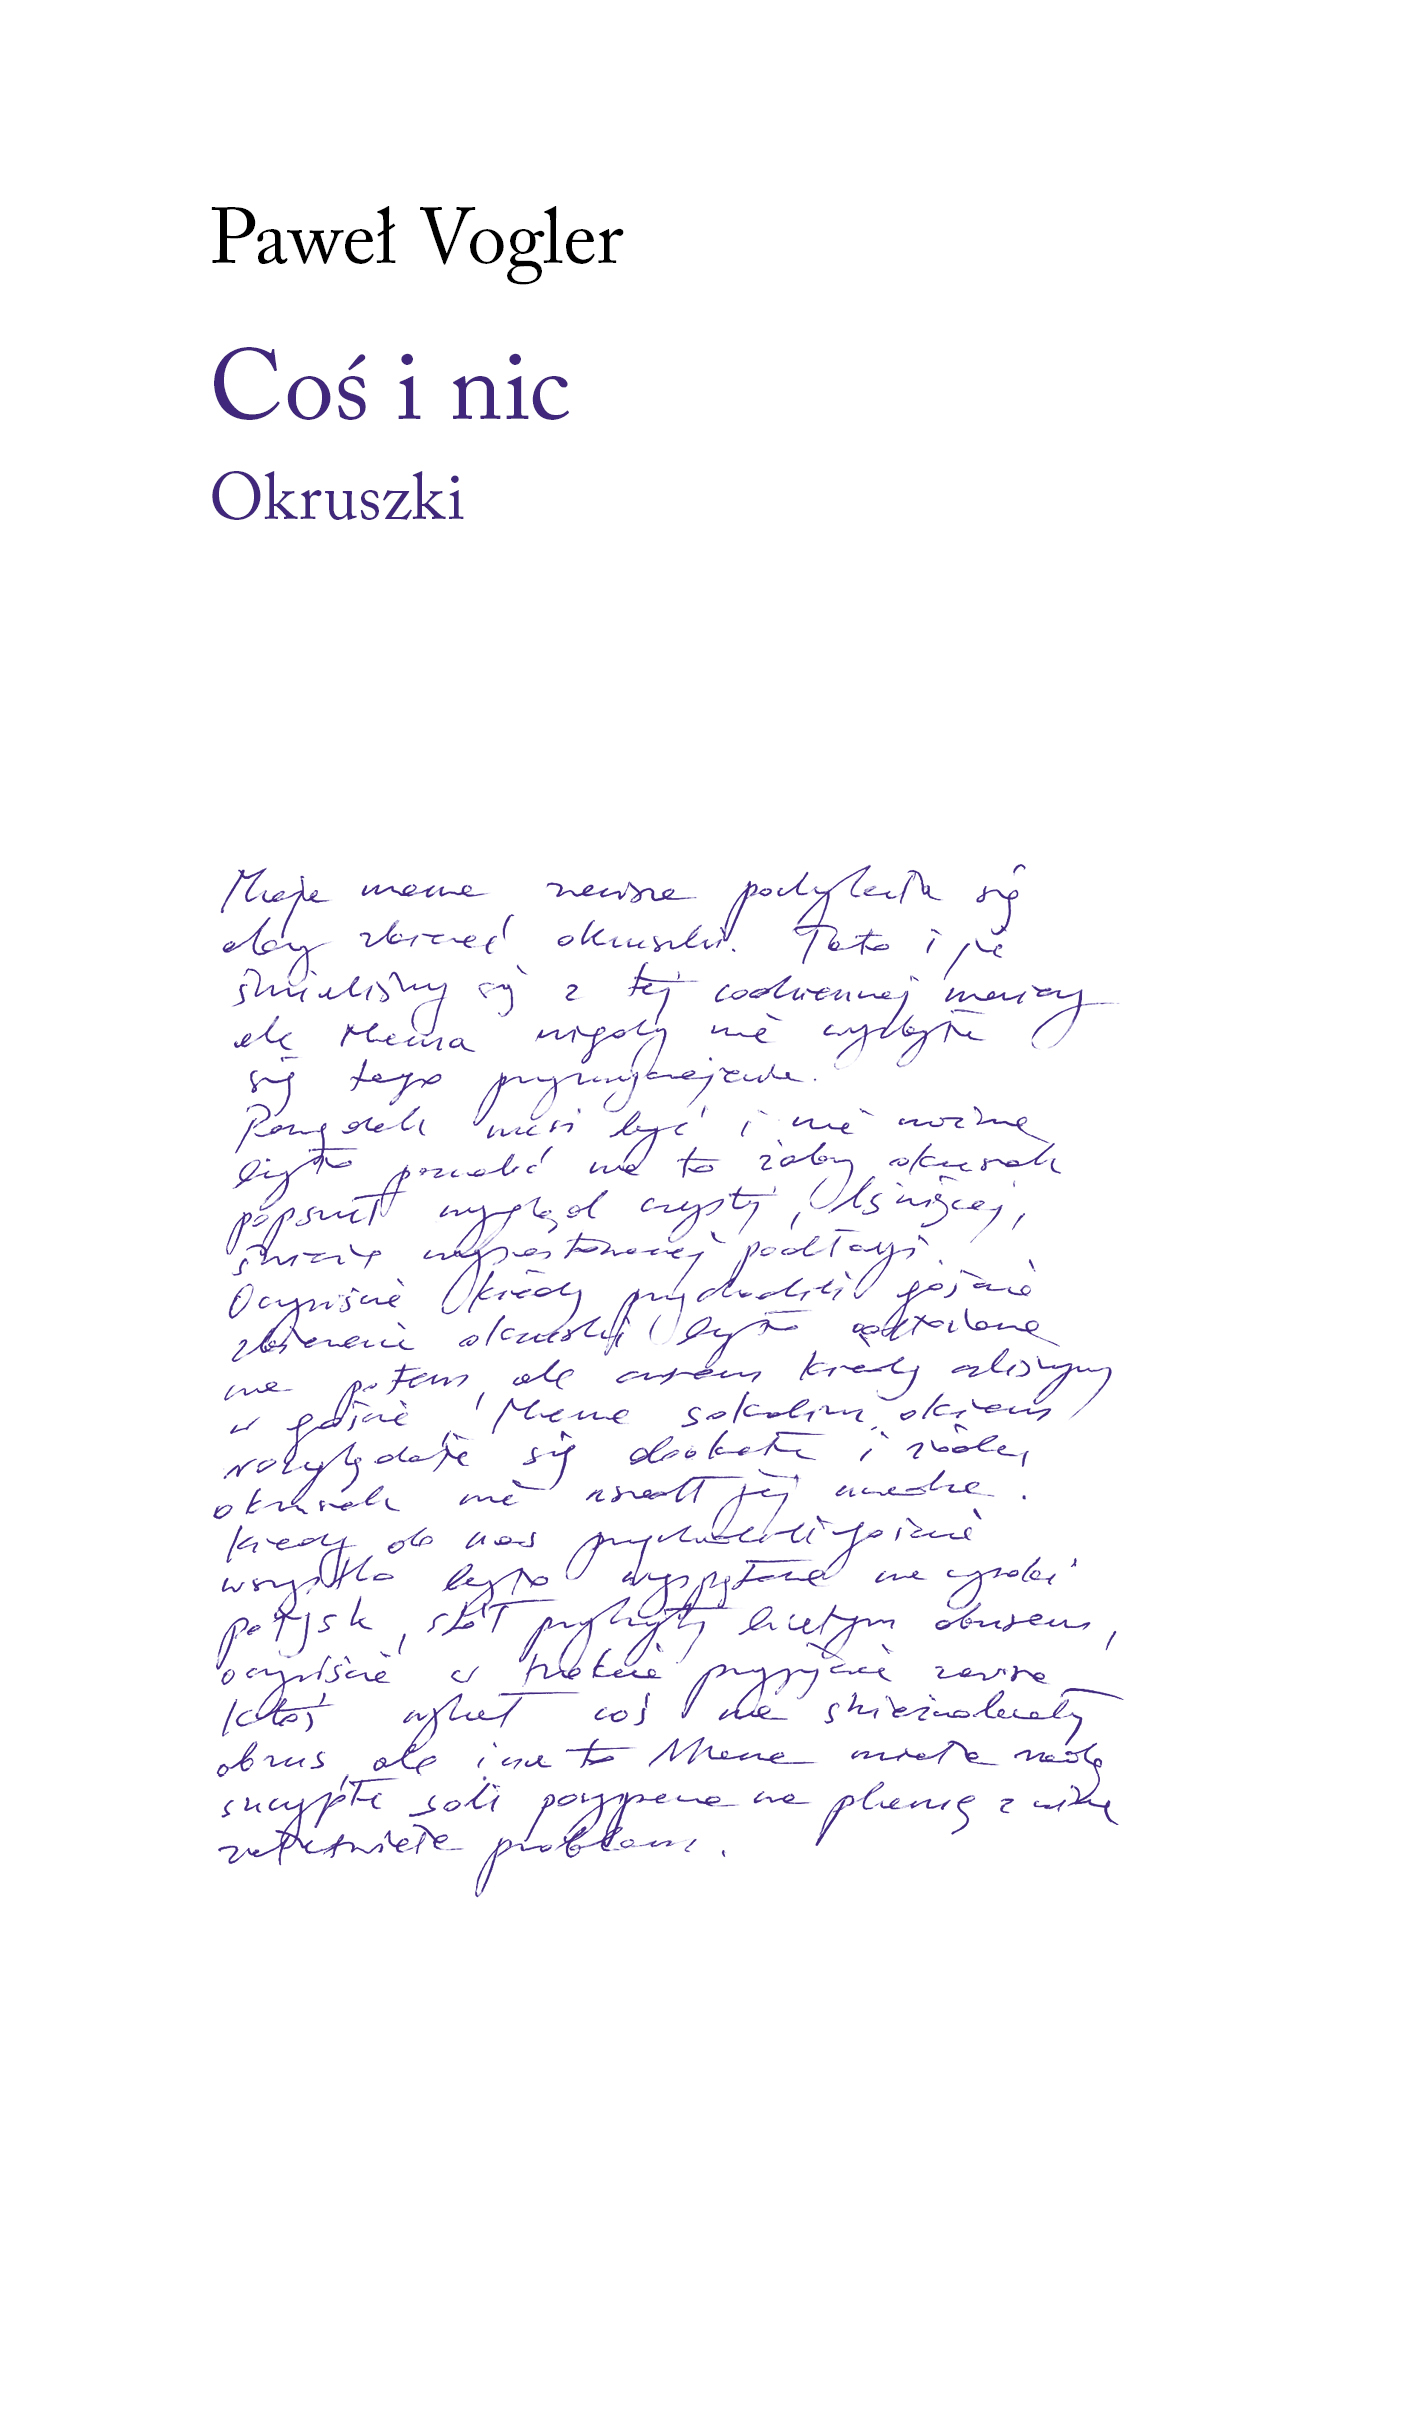 Paweł Vogler
Coś i nic
Okruszki
Moja mama zawsze podchylała się
aby zbierać okruszki. Tata i ja
śmieliśmy się z tej codziennej manicy
ale Mama nigdy nie wyzbyła
się tego przyzwyczajenia.
Porządek musi być i nie można
było pozwolić na to żeby okruszek
popsuł wygląd czystej, lśniącej,
świeżo wypastowanej podłogi.
Oczywiście kiedy przychodzili goście
zbieranie okruszków było odłożone
na potem, ale czasem kiedy szliśmy
w goście, Mama sokolim okiem
rozglądała się dookoła i żaden
okruszek nie uszedł jej uwadze.
Kiedy do nas przychodzili goście
wszystko było wypięte na wysoki
połysk, stół przykryty białym obrusem,
oczywiście w trakcie przyjęcia zawsze
ktoś wylał coś na śnieżnobiały
obrus, ale i na to Mama miała radę
szczypta soli posypana na plamę z wina
załatwiała problem.